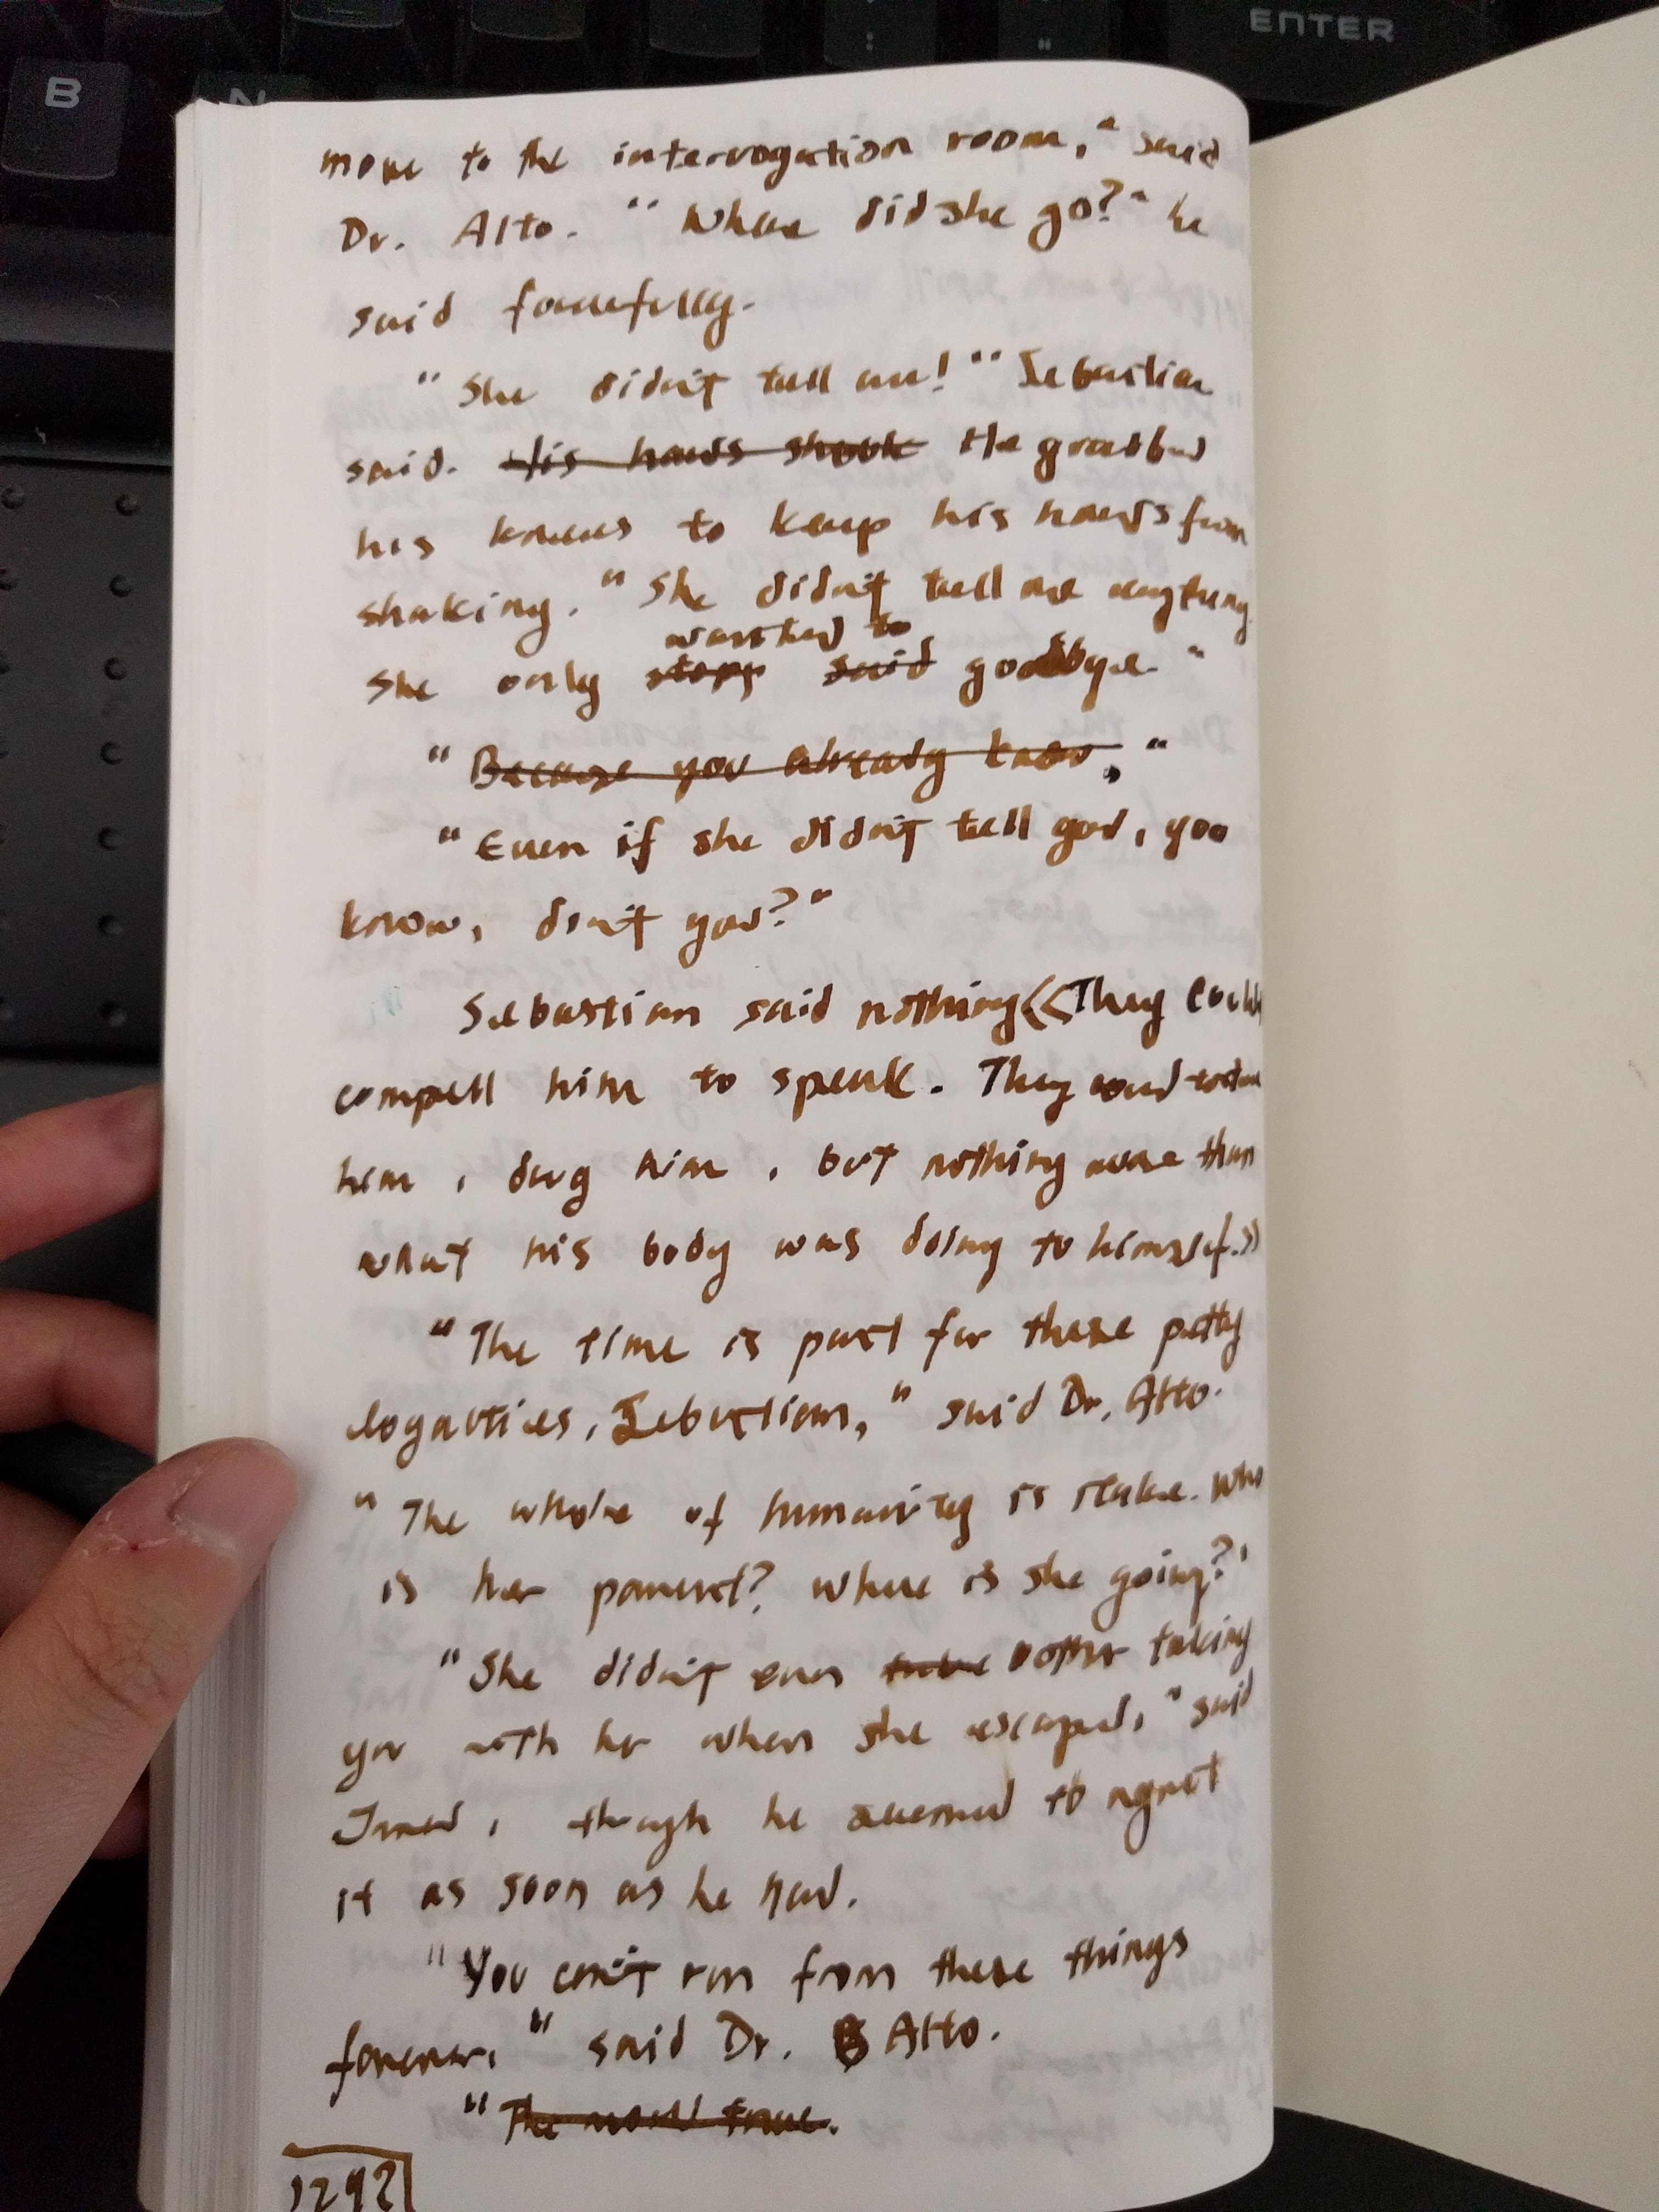 B N : " ENTER
move to the interrogation room," said
Dr. Alto. "Where did she go?" he
said forcefully.
"She didn't tell me!" Sebastian
said. His hands shook He grabbed
his knees to keep his hands from
shaking. "She didn't tell me anything
wanted to
She only stopp said goodbye."
"Because you already know,"
"Even if she didn't tell you, you
know, don't you?"
Sebastian said nothing<<They could
compell him to speak. They could torture
him, drug him, but nothing more than
what his body was doing to himself.>>
"The time is past for these petty
loyalties, Sebastian," said Dr. Alto.
"The whole of humanity is stake. Who
is her parent? Where is she going?'
"She didn't even take bother taking
you with her when she escaped," said
though he seemed to regret
it as soon as he had.
"You can't run from these things
forever," said Dr. B Alto.
"The true.
1292